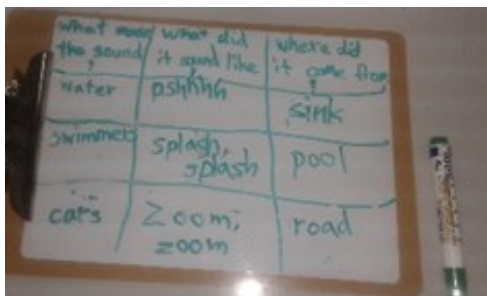 What made the sound?
What did it sound like
Where did it come from?
water
pshhhh
sink
swimmers
splash,
splash
pool
cars
Zoom,
zoom
road